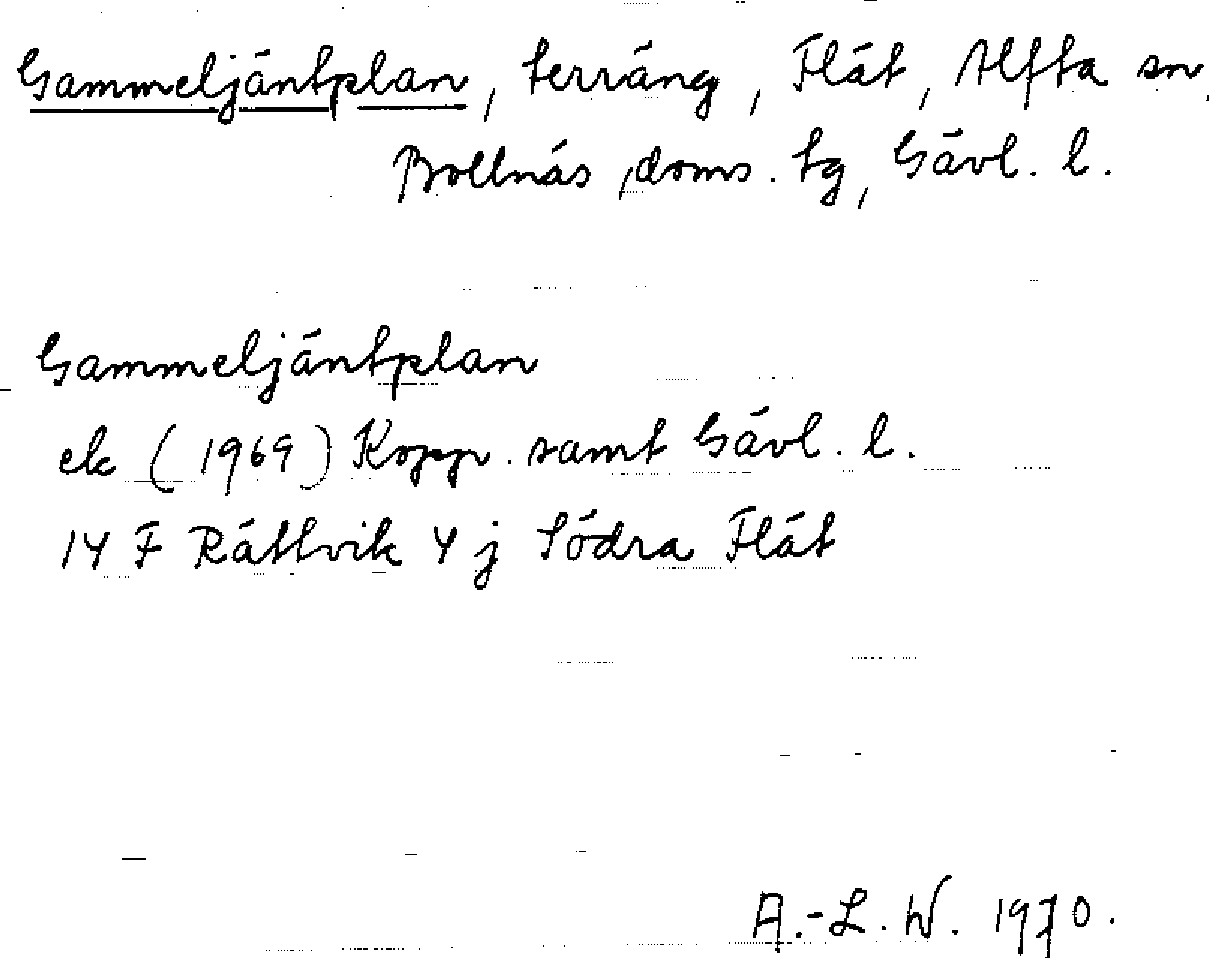 Gammeljäntplan, terräng, Flät, Alfta sn,
Bollnäs doms. tg, Gävl. l.
Gammeljäntplan
ek (1969) Kopp. samt Gävl. l.
14 F Rättvik 4 j Södra Flät
A.-L. W. 1970.